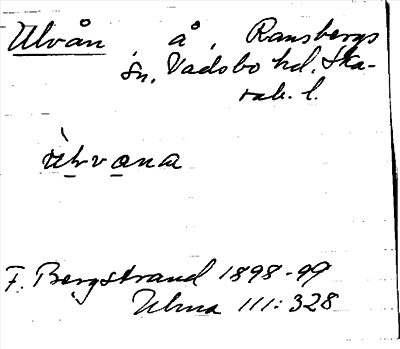 Ulvån, å, Ransbergs
sn, Vadsbo hd, Ska-
rab. l.
F. Bergstrand 1898-99
Ulma 111:328